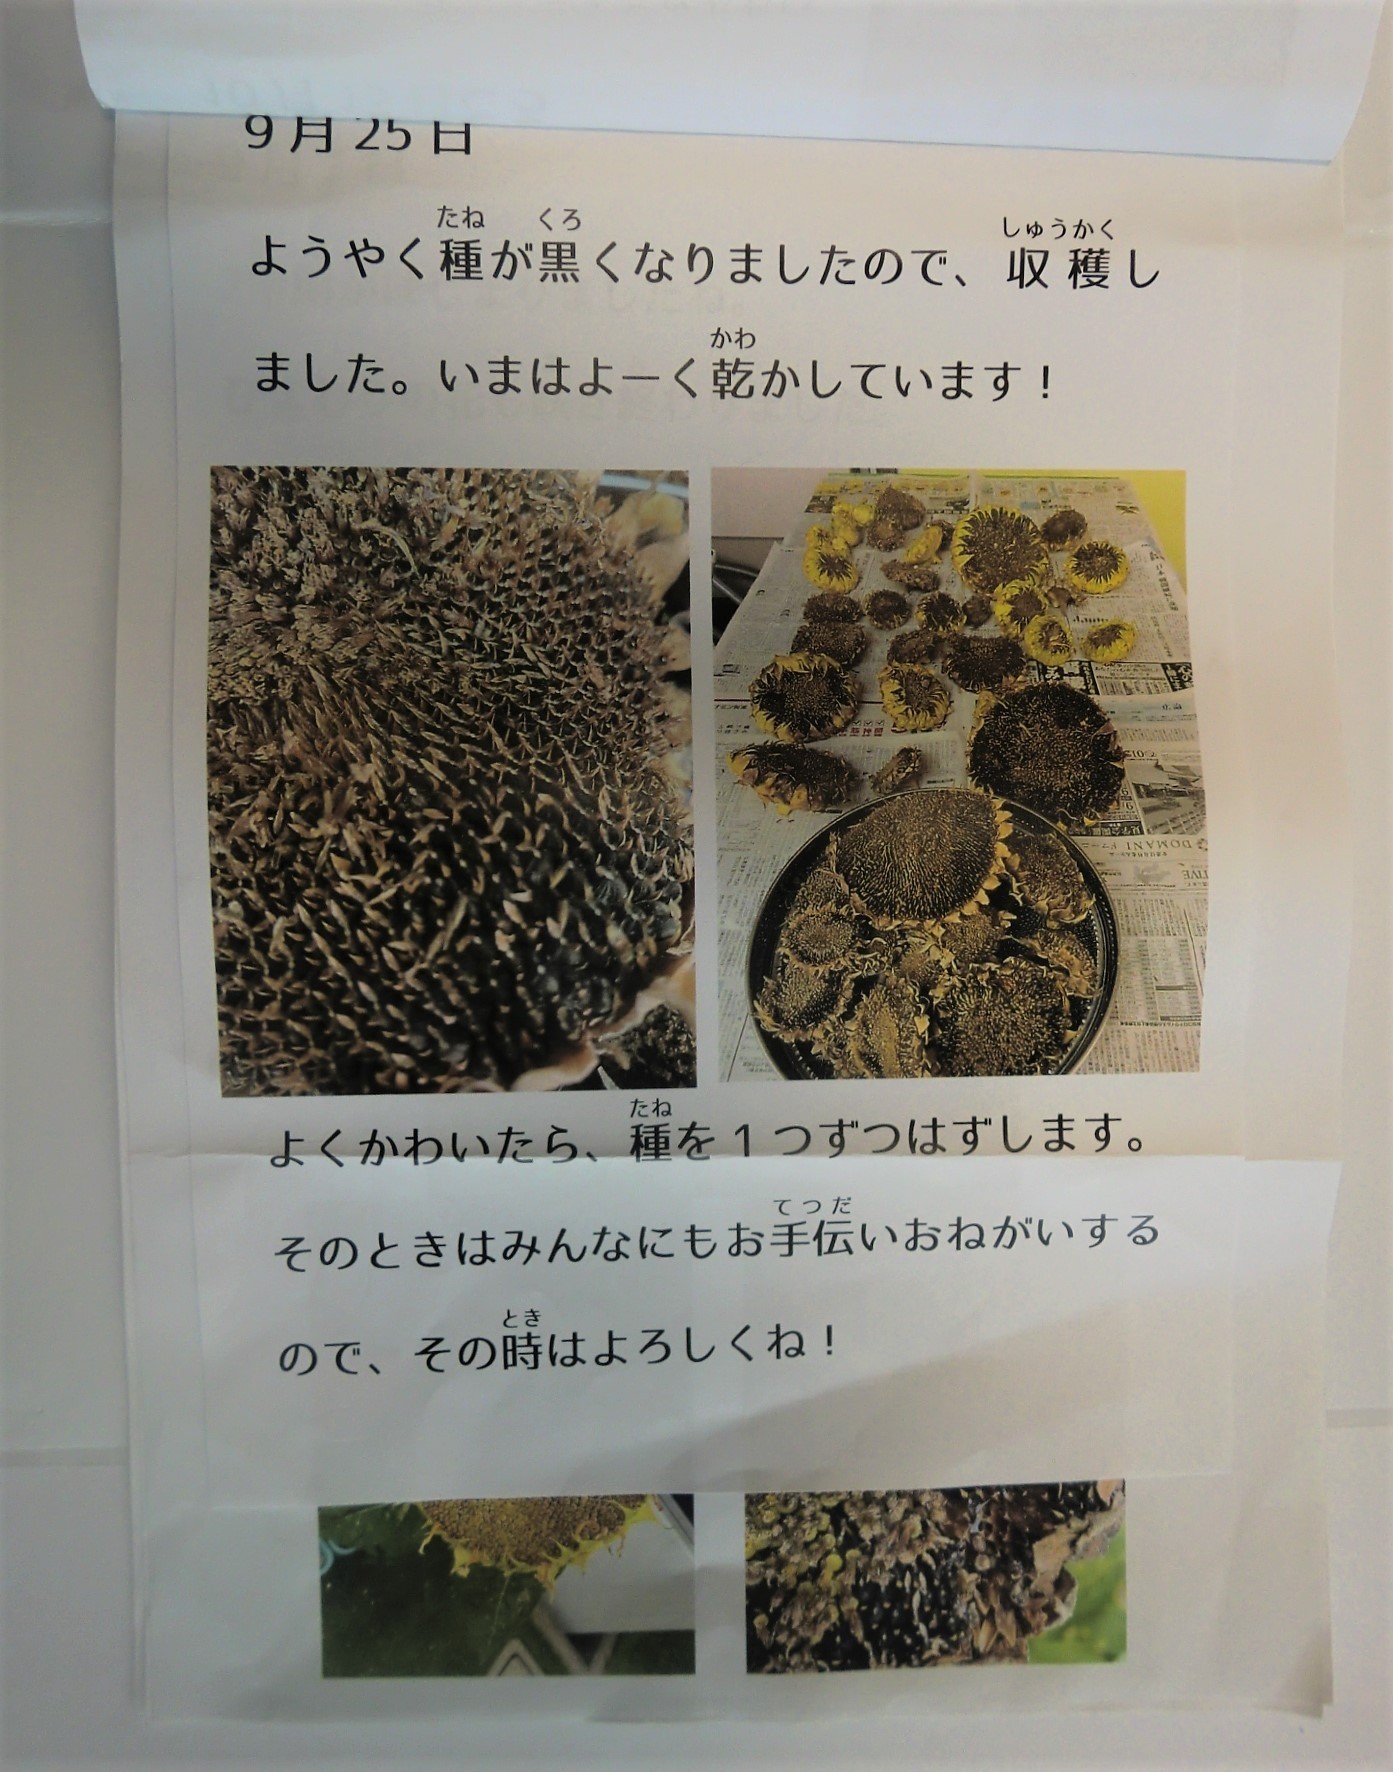 9月25日
たね くろ しゅうかく
ようやく種が黒くなりましたので、収穫し
かわ
ました。いまはよーく乾かしています！
DOMANI
たね
よくかわいたら、種を1つずつはずします。
てつだ
そのときはみんなにもお手伝いおねがいする
とき
ので、その時はよろしくね！